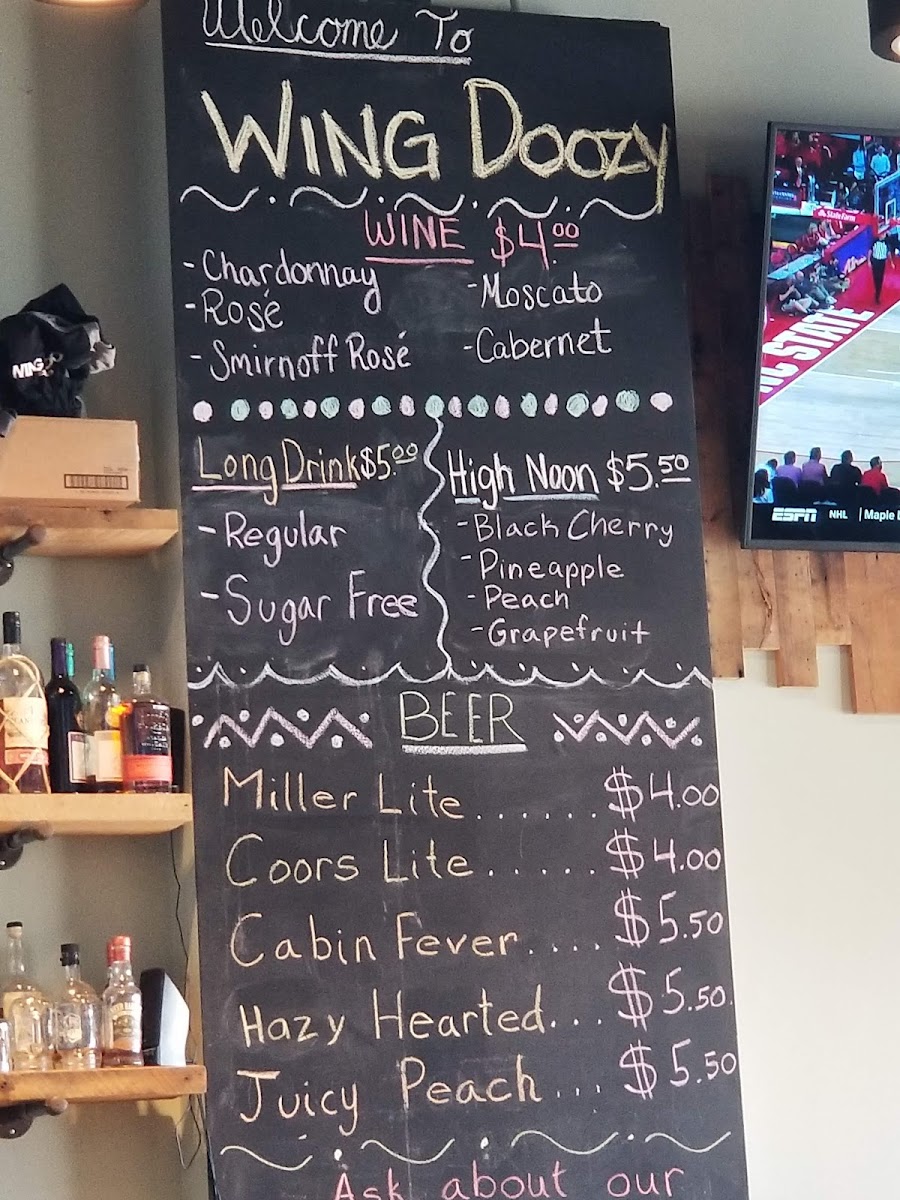 Welcome To
WING DOOZY
WINE $4.00
- Chardonnay
- Rosé
- Smirnoff Rosé
- Moscato
- Cabernet
Long Drink $5.00
- Regular
- Sugar Free
High Noon $5.50
- Black Cherry
- Pineapple
- Peach
- Grapefruit
BEER
Miller Lite ...... $4.00
Coors Lite ..... $4.00
Cabin Fever .... $5.50
Hazy Hearted... $5.50
Juicy Peach ... $5.50
Ask about our
WING
State Farm
NC STATE
ESPN NHL | Maple